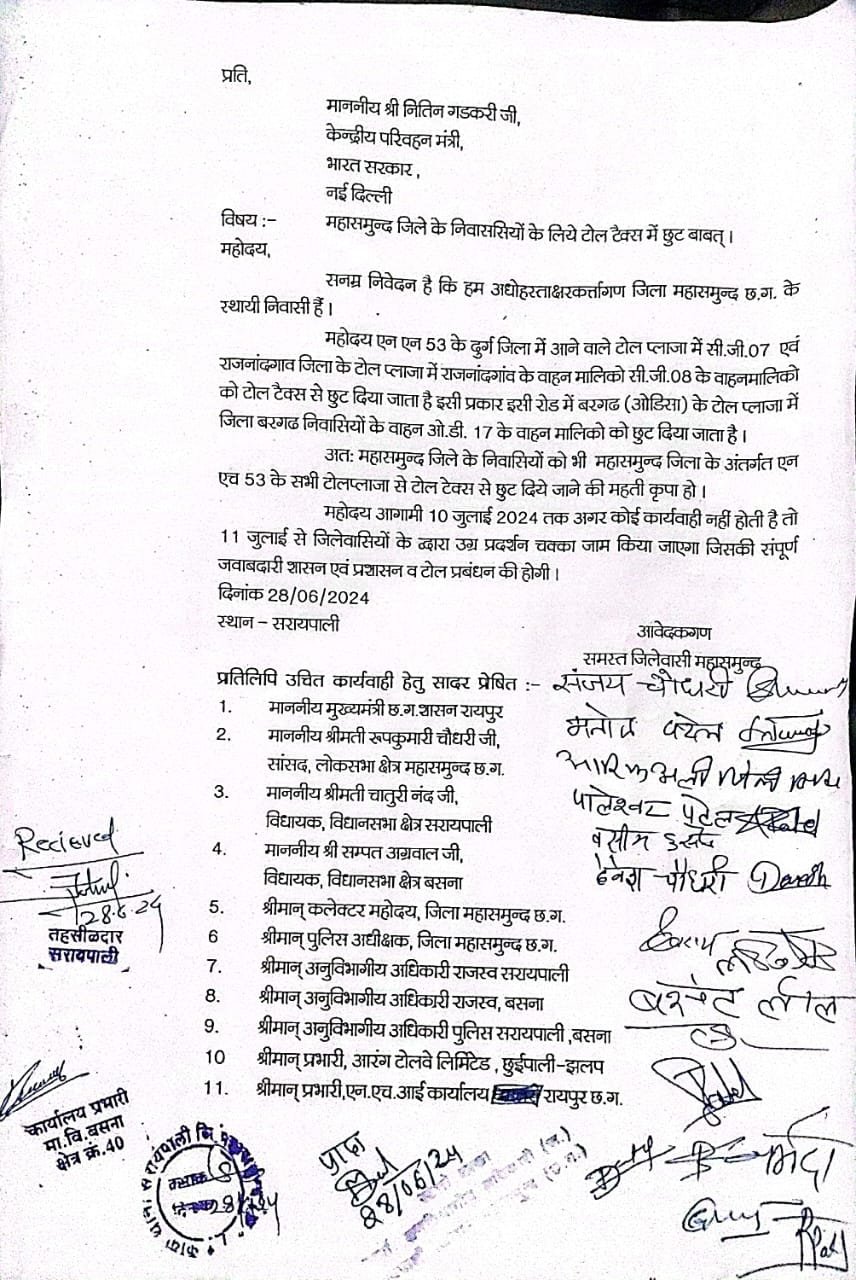 प्रति,
माननीय श्री नितिन गडकरी जी,
केन्द्रीय परिवहन मंत्री,
भारत सरकार ,
नई दिल्ली
विषय :- महासमुन्द जिले के निवाससियों के लिये टोल टैक्स में छुट बाबत् ।
महोदय,
सनम्र निवेदन है कि हम अधोहस्ताक्षरकर्त्तागण जिला महासमुन्द छ.ग. के
स्थायी निवासी हैं ।
महोदय एन एन 53 के दुर्ग जिला में आने वाले टोल प्लाजा में सी.जी.07 एवं
राजनांदगाव जिला के टोल प्लाजा में राजनांदगांव के वाहन मालिको सी.जी.08 के वाहनमालिको
को टोल टैक्स से छुट दिया जाता है इसी प्रकार इसी रोड में बरगढ (ओडिसा) के टोल प्लाजा में
जिला बरगढ निवासियों के वाहन ओ.डी. 17 के वाहन मालिको को छुट दिया जाता है ।
अतः महासमुन्द जिले के निवासियों को भी महासमुन्द जिला के अंतर्गत एन
एच 53 के सभी टोलप्लाजा से टोल टेक्स से छुट दिये जाने की महती कृपा हो ।
महोदय आगामी 10 जुलाई 2024 तक अगर कोई कार्यवाही नहीं होती है तो
11 जुलाई से जिलेवासियों के द्वारा उग्र प्रदर्शन चक्का जाम किया जाएगा जिसकी संपूर्ण
जवाबदारी शासन एवं प्रशासन व टोल प्रबंधन की होगी ।
दिनांक 28/06/2024
स्थान – सरायपाली
आवेदकगण
समस्त जिलेवासी महासमुन्द
प्रतिलिपि उचित कार्यवाही हेतु सादर प्रेषित :-
1. माननीय मुख्यमंत्री छ.ग.शासन रायपुर
2. माननीय श्रीमती रूपकुमारी चौधरी जी,
सांसद, लोकसभा क्षेत्र महासमुन्द छ.ग.
3. माननीय श्रीमती चातुरी नंद जी,
विधायक, विधानसभा क्षेत्र सरायपाली
4. माननीय श्री सम्पत अग्रवाल जी,
विधायक, विधानसभा क्षेत्र बसना
5. श्रीमान् कलेक्टर महोदय, जिला महासमुन्द छ.ग.
6 श्रीमान् पुलिस अधीक्षक, जिला महासमुन्द छ.ग.
7. श्रीमान् अनुविभागीय अधिकारी राजस्व सरायपाली
8. श्रीमान् अनुविभागीय अधिकारी राजस्व, बसना
9. श्रीमान् अनुविभागीय अधिकारी पुलिस सरायपाली ,बसना
10 श्रीमान् प्रभारी, आरंग टोलवे लिमिटेड , छुईपाली-झलप
11. श्रीमान् प्रभारी,एन.एच.आई कार्यालय रायपुर छ.ग.
संजय चौधरी
मनोज पटेल
पालेश्वर पटेल
देवेश चौधरी
Recieved
28.6.24
तहसीलदार
सरायपाली
कार्यालय प्रभारी
मा.वि.बसना
क्षेत्र क्र.40
28/06/24